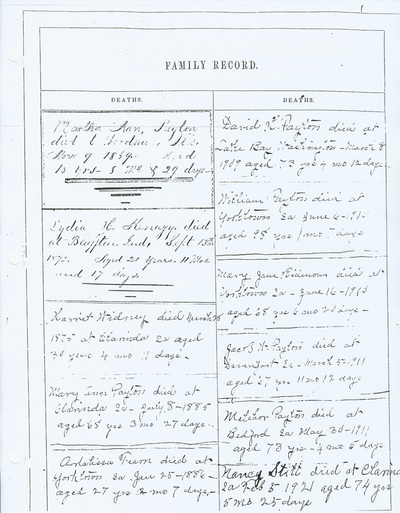 FAMILY RECORD.
DEATHS.
Martha Ann, Payton
died
Nov 9 1854. Aged
15 Yrs & 29 days
Lydia H. died
at Bluffton Ind, Sept 13th
1872. Aged 21 Years. 11 Mos
and 17 days.
Harriet Widney died March 28
1875 at Clarinda Ia aged
4 mo 11 days.
Mary Ann Payton died at
Clarinda Ia - July 8 - 1885
aged 68 yrs 3 mo 27 days.
Fearn died at
Yorktown Ia Jan 25 - 1886 -
aged 27 yrs 2 mo 7 days.
DEATHS.
David Payton died at
Bay Washington - March 8
1909 aged 73 yrs 4 mo 12 days.
William Payton died at
Yorktown Ia June 6 - 191
aged yrs 1 mo 7 days
Mary Jane died at
Yorktown Ia - June 16 - 1913
aged 68 yrs 6 mo days -
Jacob H Payton died at
Ia - March - 1911
aged 67 yrs 11 mo 12 days
Melchor Payton died at
Bedford Ia May 30 - 1911
aged 73 yrs - 4 mo 5 days
Nancy Still died at Clarinda
Ia Feb 5 1921 aged 74 yrs
5 mo 25 days